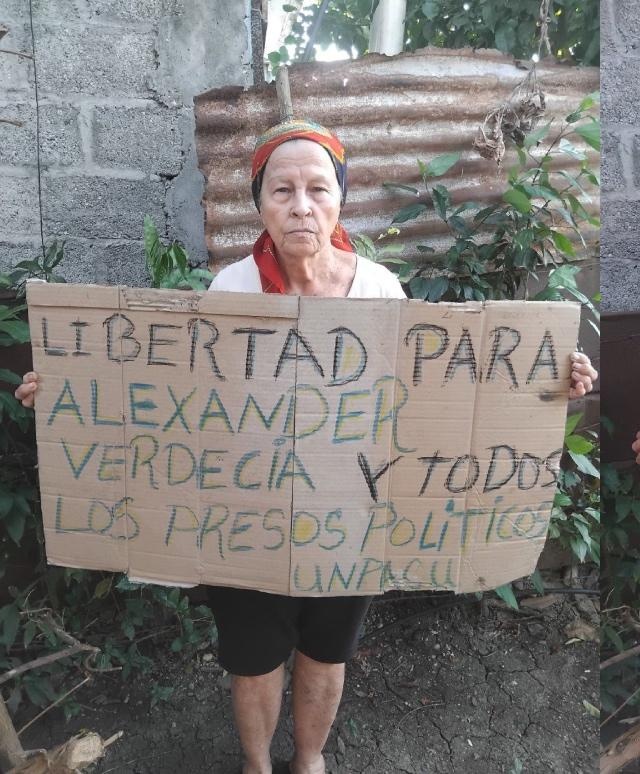 LIBERTAD PARA
ALEXANDER
VERDECIA Y TODOS
LOS PRESOS POLÍTICOS
UNPACU